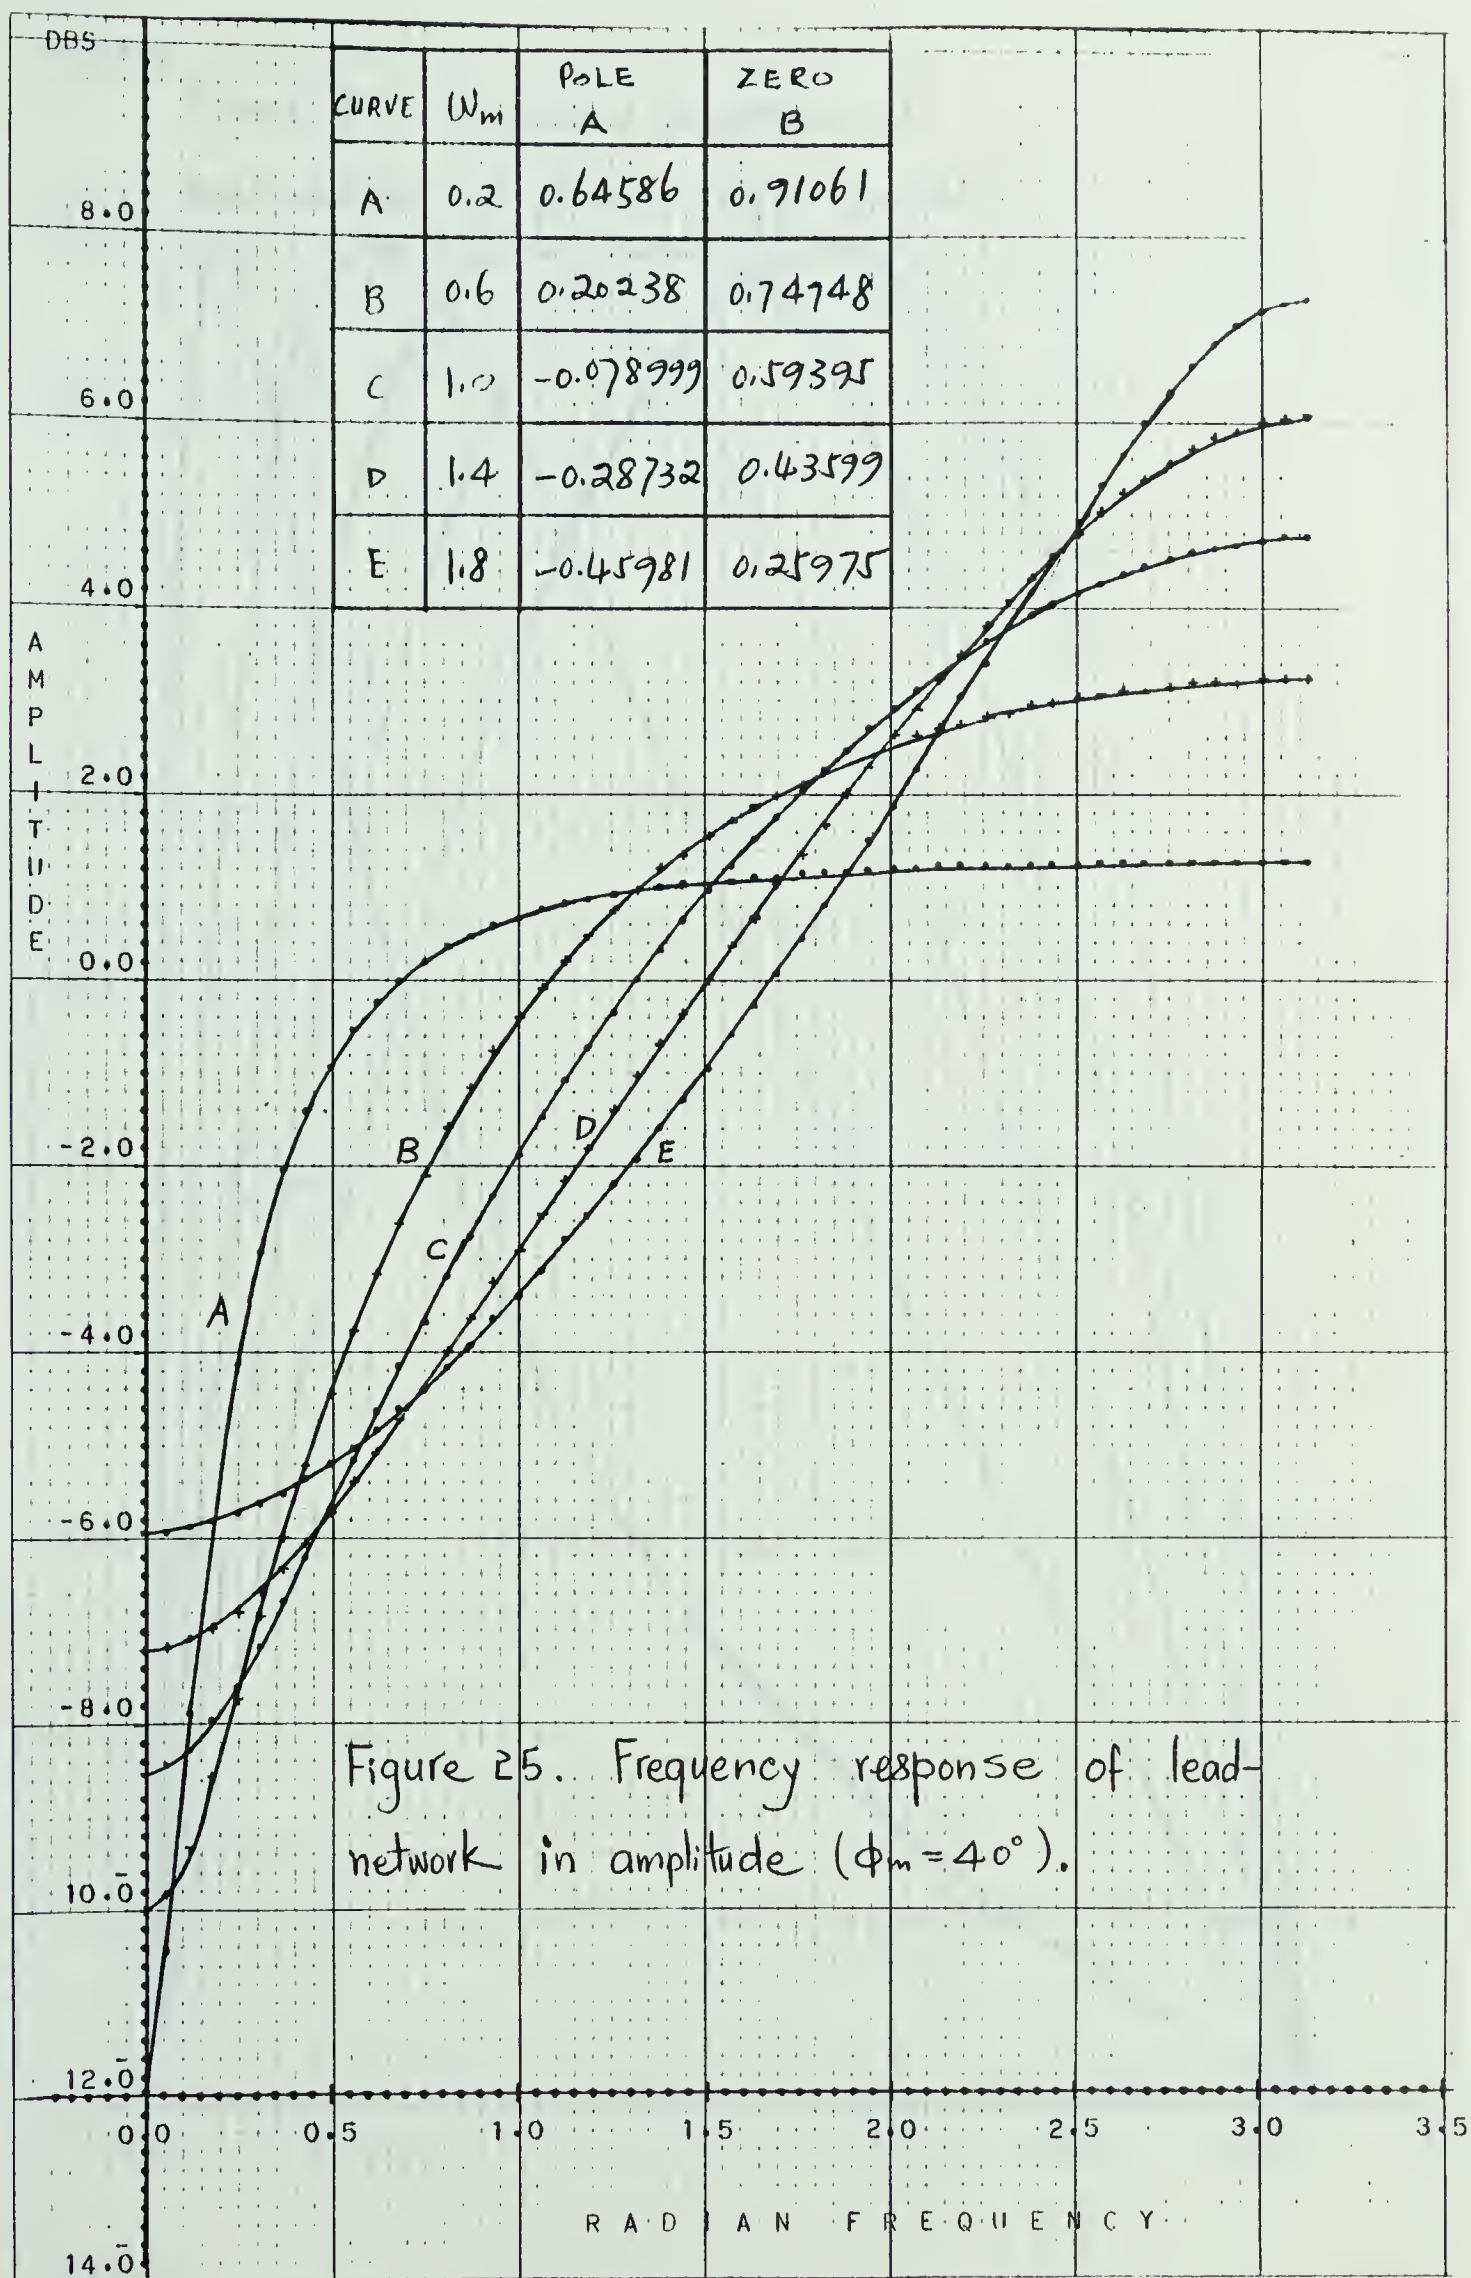 DBS
CURVE Wm POLE A ZERO B
A 0.2 0.64586 0.91061
B 0.6 0.20238 0.74748
C 1.0 -0.078999 0.59395
D 1.4 -0.28732 0.43599
E 1.8 -0.45981 0.25975
8.0
6.0
4.0
2.0
0.0
-2.0
-4.0
-6.0
-8.0
-10.0
-12.0
-14.0
AMPLITUDE
A
B
C
D
E
Figure 25. Frequency response of lead-
network in amplitude (φm = 40°).
0.0 0.5 1.0 1.5 2.0 2.5 3.0 3.5
RADIAN FREQUENCY